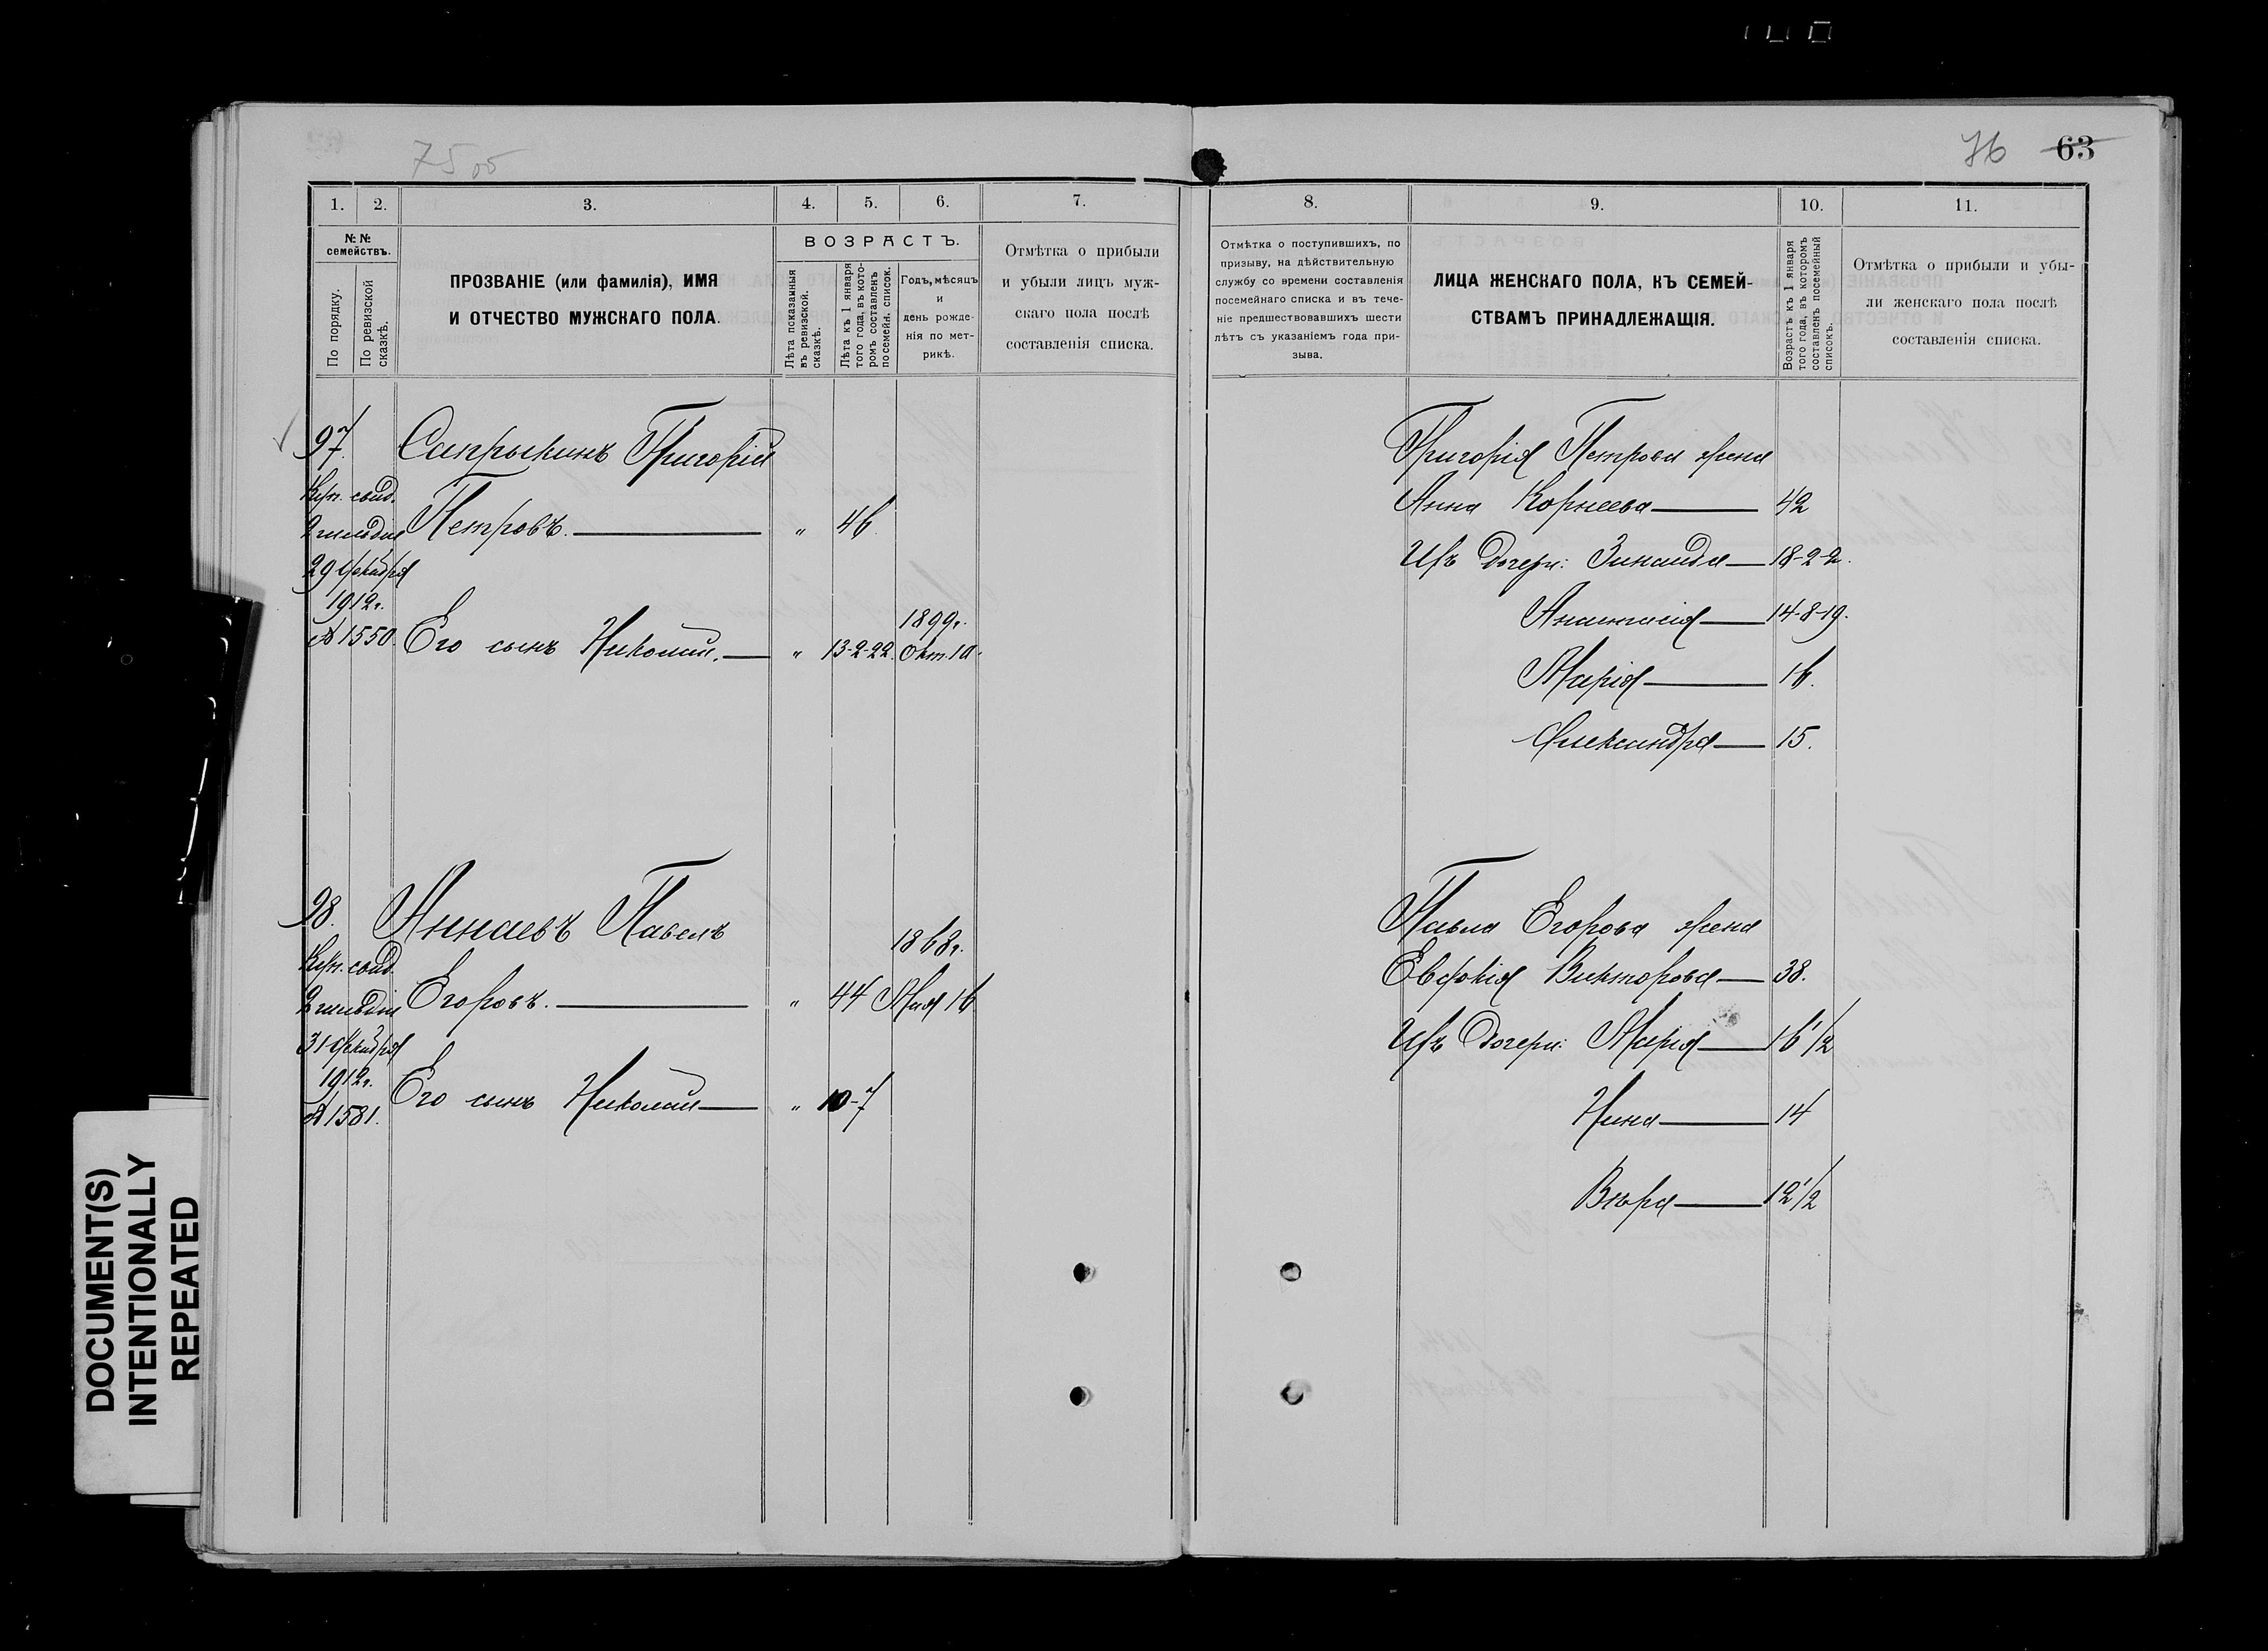 75 об
76 63
1. 2. 3. 4. 5. 6. 7.
№ № семействъ.
По порядку.
По ревизской сказкѣ.
ПРОЗВАНІЕ (или фамилія), ИМЯ
И ОТЧЕСТВО МУЖСКАГО ПОЛА.
ВОЗРАСТЪ.
Лѣта показанныя
въ ревизской
сказкѣ.
Лѣта къ 1 января
того года, въ кото-
ромъ составленъ
посемейн. список.
Годъ, мѣсяцъ
и
день рожде-
нія по мет-
рикѣ.
Отмѣтка о прибыли
и убыли лицъ муж-
скаго пола послѣ
составленія списка.
97.
Купч. свид.
2 гильдіи
29 декабря
1912 г.
№ 1550.
Сапрыкинъ Григорій
Петровъ. — " 46
Его сынъ Николай. — " 13-2-22. 1899 г.
Окт. 10.
98.
Купч. свид.
2 гильдіи
31 декабря
1912 г.
№ 1581.
Аннаевъ Павелъ
Егоровъ. — " 44 1868 г.
Мая 16
Его сынъ Николай — " 10-7
8. 9. 10. 11.
Отмѣтка о поступившихъ, по
призыву, на дѣйствительную
службу со времени составленія
посемейнаго списка и въ тече-
ніе предшествовавшихъ шести
лѣтъ съ указаніемъ года при-
зыва.
ЛИЦА ЖЕНСКАГО ПОЛА, КЪ СЕМЕЙ-
СТВАМЪ ПРИНАДЛЕЖАЩІЯ.
Возрастъ къ 1 января
того года, въ которомъ
составленъ посемейный
списокъ.
Отмѣтка о прибыли и убы-
ли женскаго пола послѣ
составленія списка.
Григорія Петрова жена
Анна Корнеева — 42
Ихъ дочери: Зинаида — 18-2-2.
Анастасія — 14-8-19.
Марія — 16.
Александра — 15.
Павла Егорова жена
Евдокія Викторова — 38.
Ихъ дочери: Марія — 16 1/2
Нина — 14
Вѣра — 12 1/2
DOCUMENT(S)
INTENTIONALLY
REPEATED